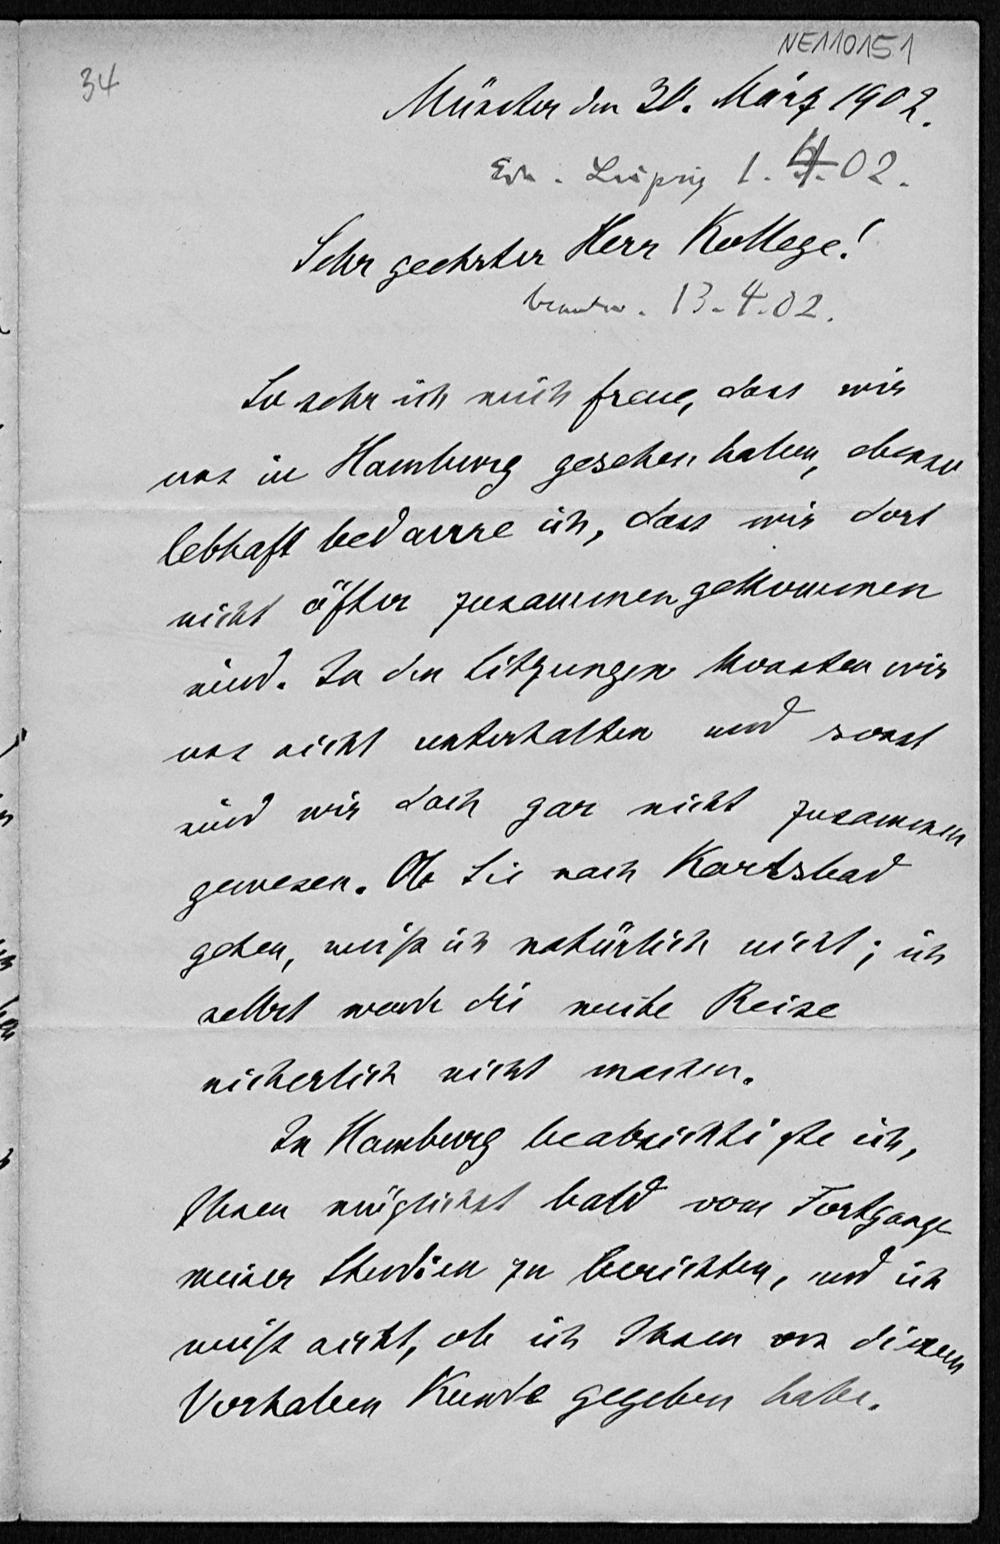 NE110151
34
Münster den 30. März 1902.
Leipzig 1. 4. 02.
Sehr geehrter Herr Kollege!
beantw. 13. 4. 02.
So sehr ich mich freue, dass wir
uns in Hamburg gesehen haben, ebenso
lebhaft bedaure ich, dass wir dort
nicht öfter zusammengekommen
sind. In den Sitzungen konnten wir
uns nicht unterhalten und sonst
sind wir doch gar nicht zusammen
gewesen. Ob Sie nach Karlsbad
gehen, weiß ich natürlich nicht; ich
selbst werde die weite Reise
sicherlich nicht machen.
In Hamburg beabsichtigte ich,
Ihnen möglichst bald vom Fortgange
meiner Studien zu berichten, und ich
weiß nicht, ob ich Ihnen von diesem
Vorhaben Kunde gegeben habe.